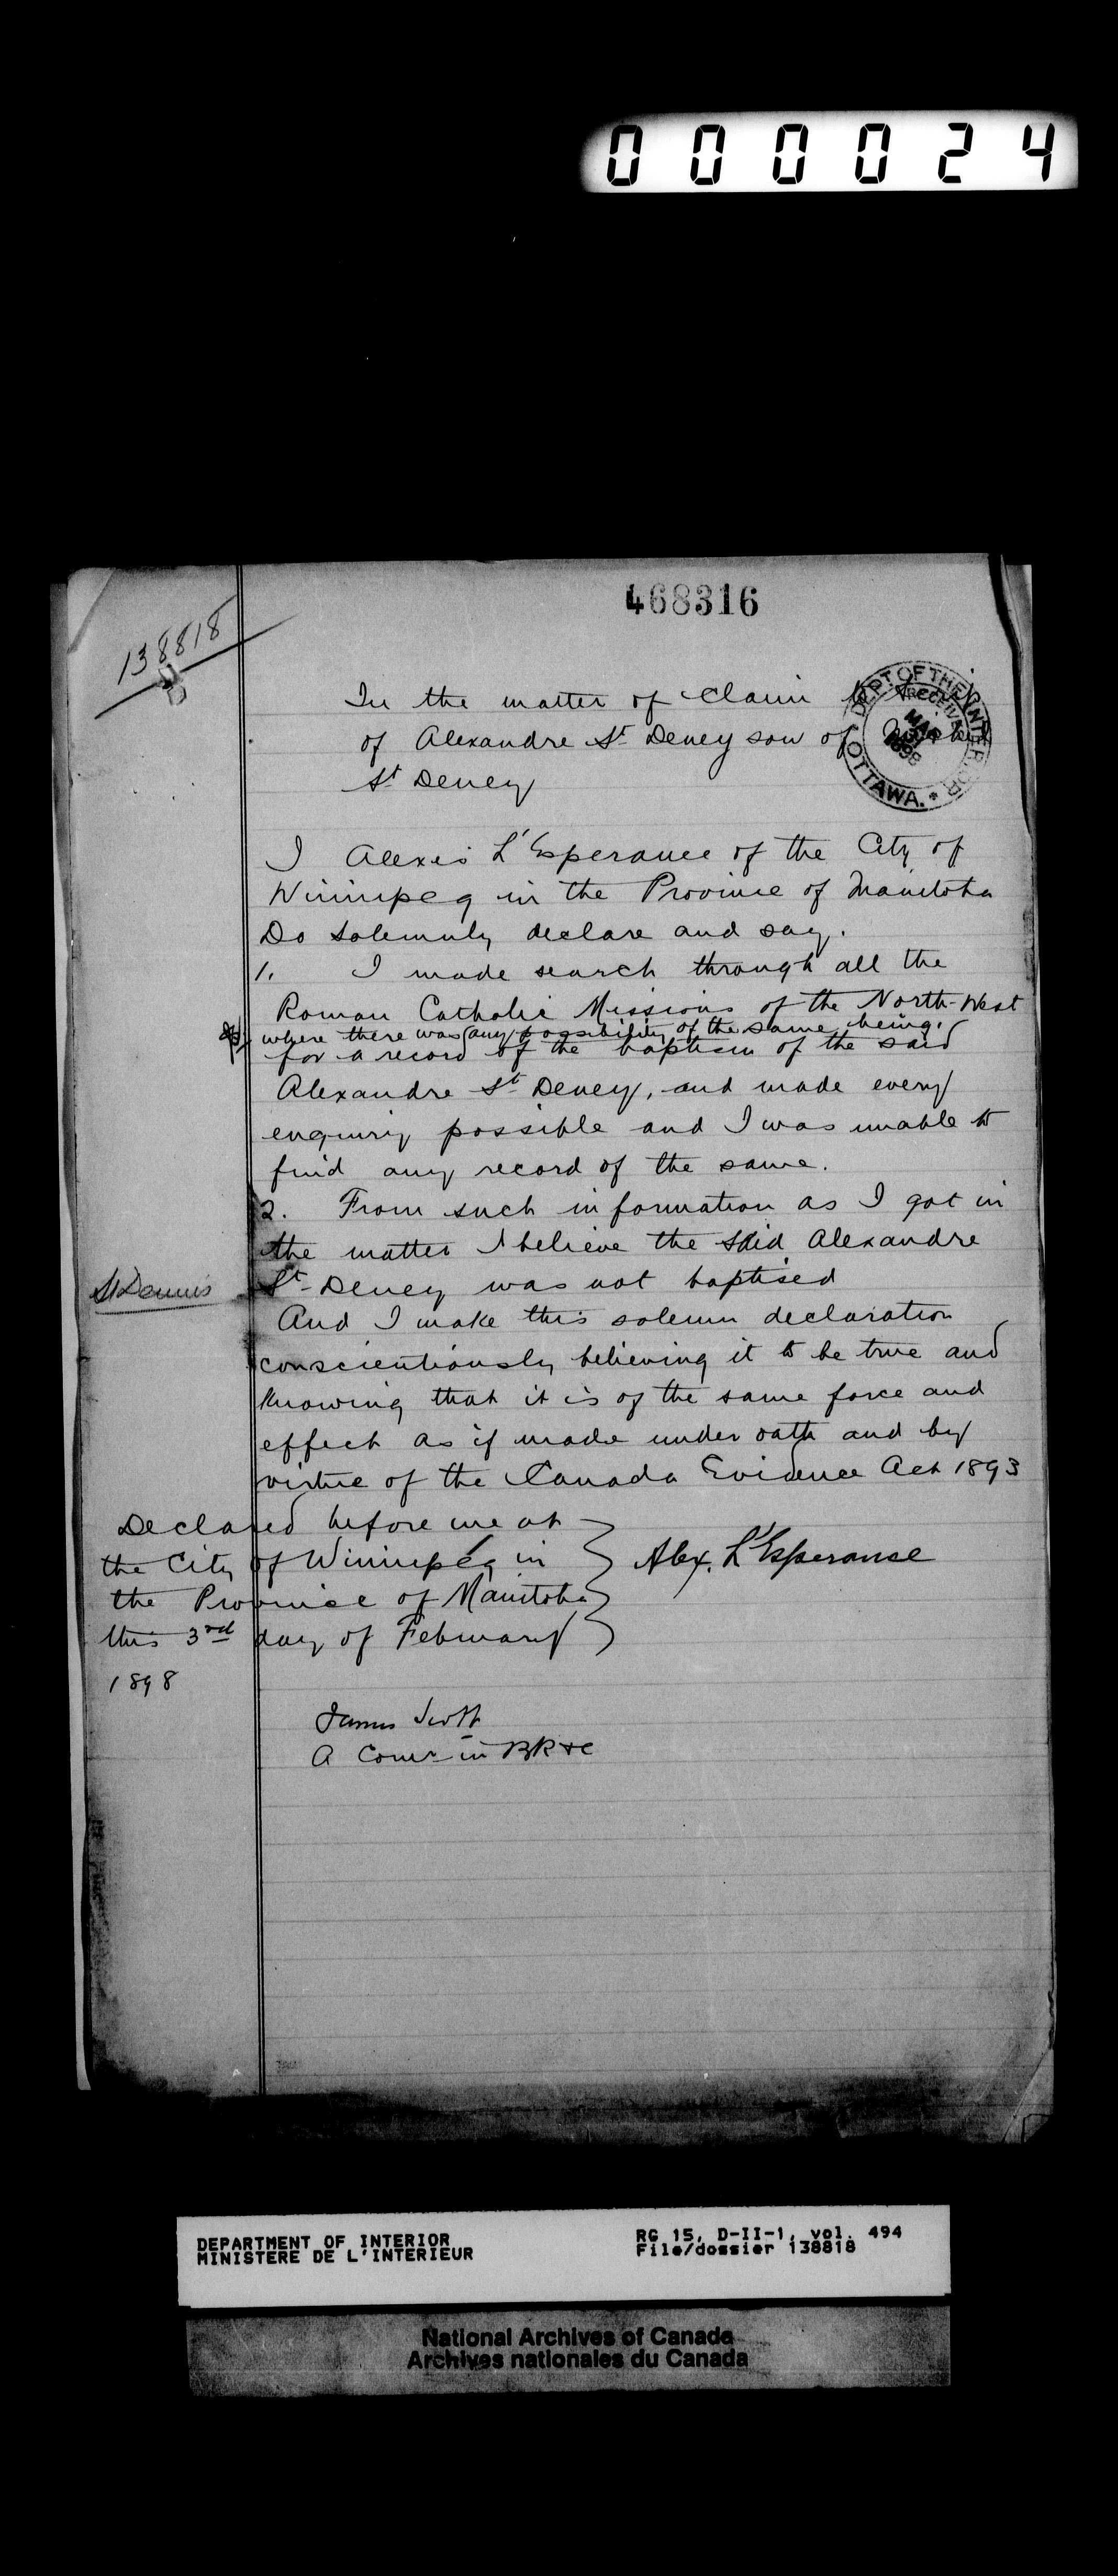 000024
468316
138818
In the matter of Claim to
of Alexandre St Deney son of
St Deney
DEPT. OF THE INTERIOR
RECEIVED
MAR
1898
OTTAWA.
I Alexis L'Esperance of the City of
Winnipeg in the Province of Manitoba
Do Solemnly declare and say.
1. I made search through all the
Roman Catholic Missions of the North-West
where there was any possibility of the same being.
for a record of the baptism of the said
Alexandre St Deney, and made every
enquiry possible and I was unable to
find any record of the same.
2. From such information as I got in
the matter I believe the said Alexandre
St Dennis
St Deney was not baptised
And I make this solemn declaration
conscientiously believing it to be true and
knowing that it is of the same force and
effect as if made under oath and by
virtue of the Canada Evidence Act 1893
Declared before me at
the City of Winnipeg in
the Province of Manitoba
this 3rd day of February
1898
Alex. L'Esperance
James Scott
A Comr in BR &c
DEPARTMENT OF INTERIOR
MINISTERE DE L'INTERIEUR
RG 15, D-II-1, vol. 494
File/dossier 138818
National Archives of Canada
Archives nationales du Canada